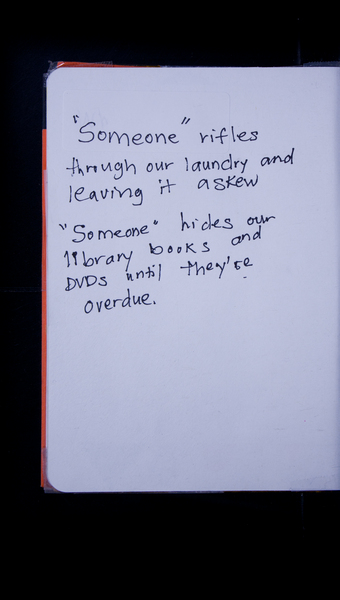 "Someone" rifles
through our laundry and
leaving it askew
"Someone" hides our
library books and
DVDs until they're
overdue.